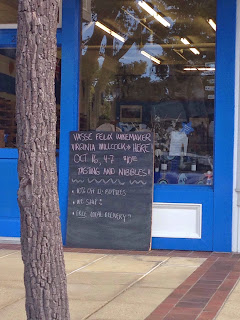 VASSE FELIX WINEMAKER
VIRGINIA WILLCOCK * HERE
OCT 16, 4-7 $10
TASTING AND NIBBLES!!
10% OFF
WE SHIP
FREE LOCAL DELIVERY